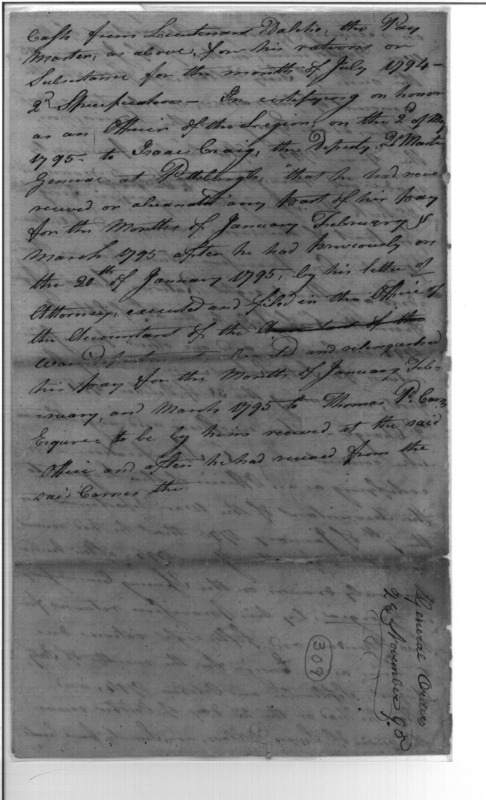 Cash from Lieutenant Dalcho, the Pay
Master, as above, for his rations or
Subsistance for the month of July 1794 –
2d Specification – In certifying on honor
as an Officer of the Legion, on the 2d of May
1795 – to Isaac Craig, the Deputy Qr Master
General at Pittsburgh, that he had never
received or alienated any part of his pay
for the Months of January February &
March 1795 after he had previously on
the 20th of January 1795 – by his letter of
Attorney, executed and filed in the Office of
the Accountant of the Accountant of the
War Department and relinquished
his pay for the Months of January Feb-
ruary, and March 1795 to Thomas P. Carnes
Esquire to be by him received at the said
Office and after he had received from the
said Carnes the
General Orders
22 November 95
309